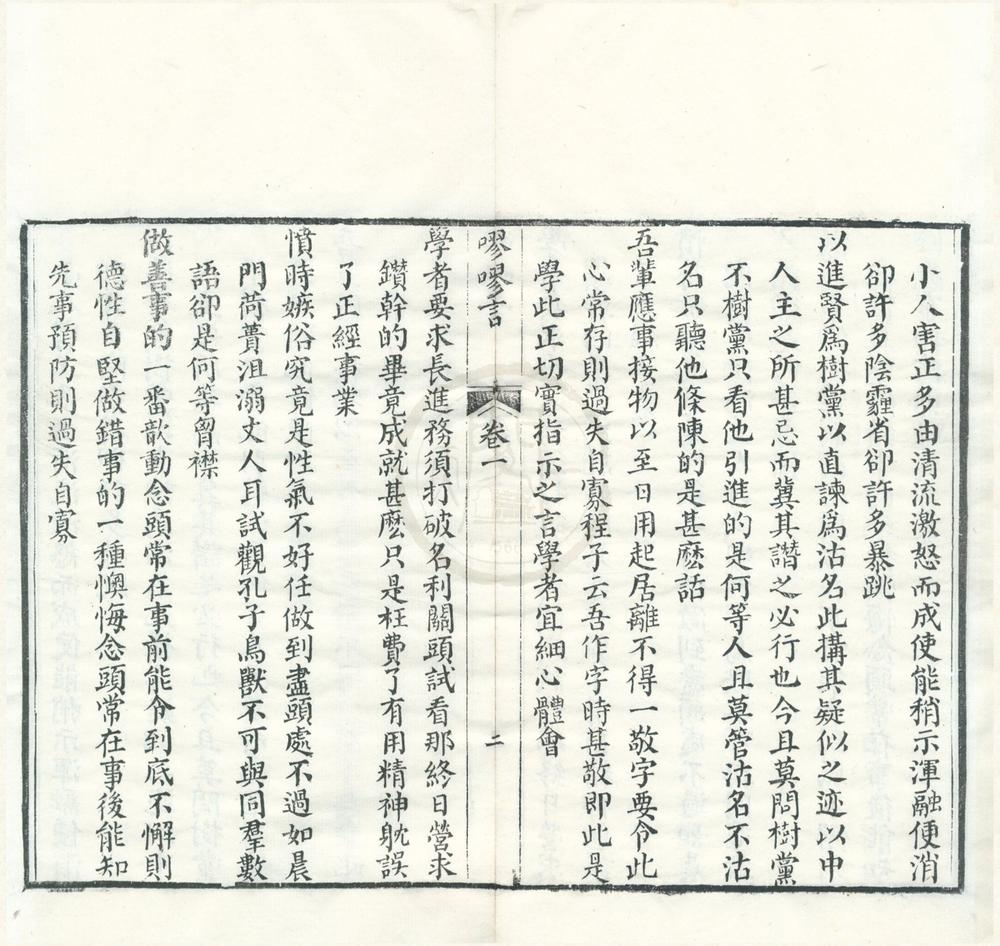 小人害正多由清流激怒而成使能稍示渾融便消
卻許多陰霾省卻許多暴跳
以進賢爲樹黨以直諫爲沽名此搆其疑似之迹以中
人主之所甚忌而冀其譖之必行也今且莫問樹黨
不樹黨只看他引進的是何等人且莫管沽名不沽
名只聽他條陳的是甚麽話
吾輩應事接物以至日用起居離不得一敬字要令此
心常存則過失自寡程子云吾作字時甚敬卽此是
學此正切實指示之言學者宜細心體會
嘐嘐言 卷一 二
學者要求長進務須打破名利關頭試看那終日營求
鑽幹的畢竟成就甚麽只是枉費了有用精神躭誤
了正經事業
憤時嫉俗究竟是性氣不好任做到盡頭處不過如晨
門荷蕢沮溺丈人耳試觀孔子鳥獸不可與同羣數
語卻是何等胷襟
做善事的一番歆動念頭常在事前能令到底不懈則
德性自堅做錯事的一種懊悔念頭常在事後能知
先事預防則過失自寡